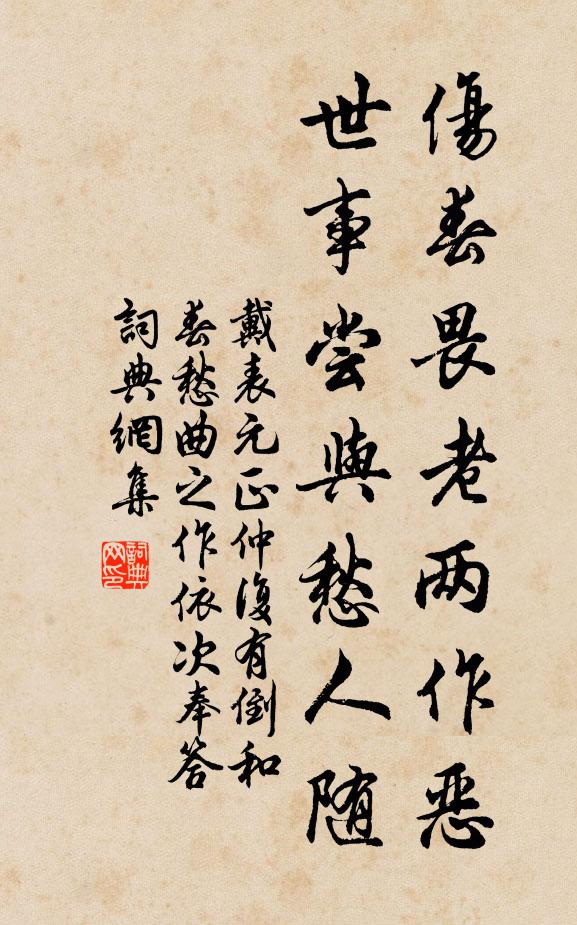 傷春畏老两作惡
世事尝與愁人随
戴表元正仲復有倒和
春愁曲之作依次奉答
詞典網集
詞典网印